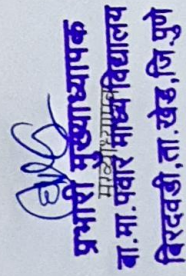 प्रभारी मुख्याध्यापक
बा.मा.पवार माध्य.विद्यालय
बिरदवडी,ता.खेड,जि.पुणे